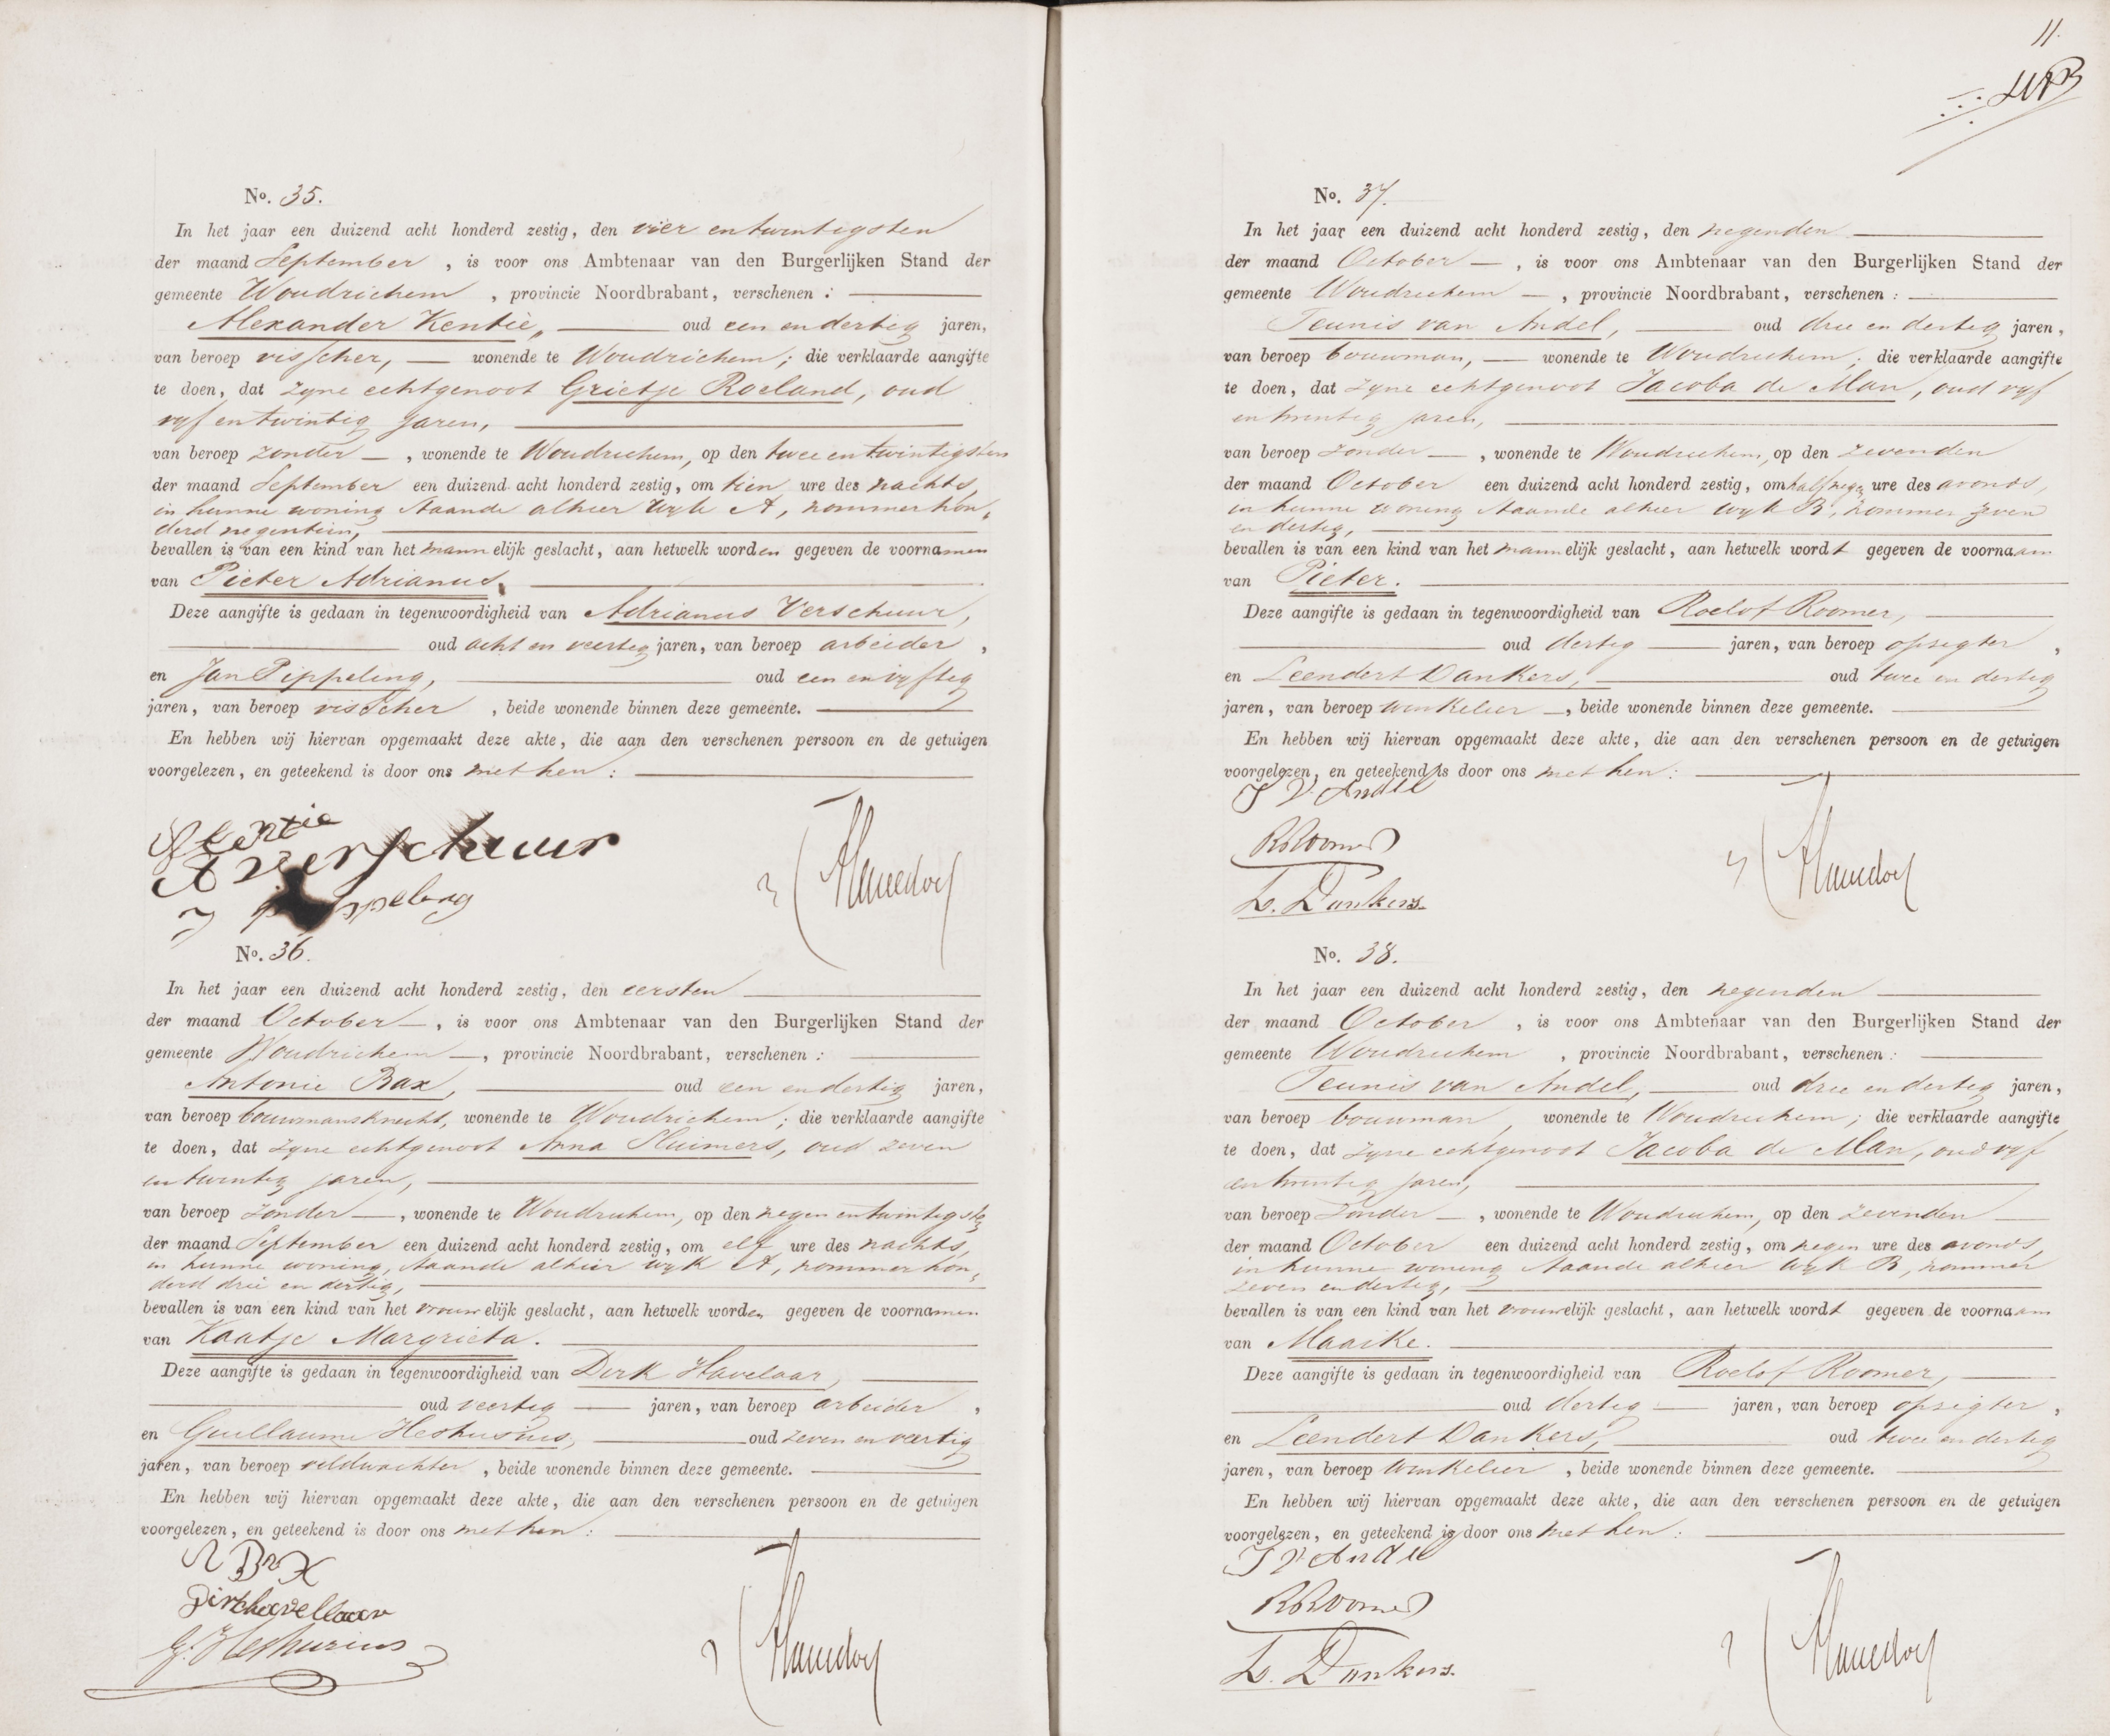 No. 35.
In het jaar een duizend acht honderd zestig, den vier en twintigsten
der maand September, is voor ons Ambtenaar van den Burgerlijken Stand der
gemeente Woudrichem, provincie Noordbrabant, verschenen:
Alexander Kentie, oud een en dertig jaren,
van beroep visscher, wonende te Woudrichem; die verklaarde aangifte
te doen, dat zyne echtgenoot Grietje Roeland, oud
vyf en twintig jaren,
van beroep zonder, wonende te Woudrichem, op den twee en twintigsten
der maand September een duizend acht honderd zestig, om tien ure des nachts,
in hunne woning staande alhier wyk A, nommer hon-
derd negentien,
bevallen is van een kind van het mannelijk geslacht, aan hetwelk worden gegeven de voornamen
van Pieter Adrianus.
Deze aangifte is gedaan in tegenwoordigheid van Adrianus Verschuur,
oud acht en veertig jaren, van beroep arbeider,
en Jan Pippeling, oud een en vyftig
jaren, van beroep visscher, beide wonende binnen deze gemeente.
En hebben wij hiervan opgemaakt deze akte, die aan den verschenen persoon en de getuigen
voorgelezen, en geteekend is door ons met hen:
A Kentie
A verschuur
No. 36.
In het jaar een duizend acht honderd zestig, den eersten
der maand October, is voor ons Ambtenaar van den Burgerlijken Stand der
gemeente Woudrichem, provincie Noordbrabant, verschenen:
Antonie Bax, oud een en dertig jaren,
van beroep bouwmansknecht, wonende te Woudrichem; die verklaarde aangifte
te doen, dat zyne echtgenoot Anna Sluimers, oud zeven
en twintig jaren,
van beroep zonder, wonende te Woudrichem, op den negen en twintigste
der maand September een duizend acht honderd zestig, om elf ure des nachts,
in hunne woning, staande alhier wyk A, nommer hon-
derd drie en dertig,
bevallen is van een kind van het vrouwelijk geslacht, aan hetwelk worden gegeven de voornamen
van Kaatje Margrieta.
Deze aangifte is gedaan in tegenwoordigheid van Dirk Havelaar,
oud veertig jaren, van beroep arbeider,
en Guillaume Heshusius, oud zeven en veertig
jaren, van beroep veldwachter, beide wonende binnen deze gemeente.
En hebben wij hiervan opgemaakt deze akte, die aan den verschenen persoon en de getuigen
voorgelezen, en geteekend is door ons met hen:
A Bax
Dirk havellaar
G. Heshusius
11.
No. 37.
In het jaar een duizend acht honderd zestig, den negenden
der maand October, is voor ons Ambtenaar van den Burgerlijken Stand der
gemeente Woudrichem, provincie Noordbrabant, verschenen:
Teunis van Andel, oud drie en dertig jaren,
van beroep bouwman, wonende te Woudrichem; die verklaarde aangifte
te doen, dat zyne echtgenoot Jacoba de Man, oud vyf
en twintig jaren,
van beroep zonder, wonende te Woudrichem, op den zevenden
der maand October een duizend acht honderd zestig, om half negen ure des avonds,
in hunne woning staande alhier wyk B, nommer zeven
en dertig,
bevallen is van een kind van het mannelijk geslacht, aan hetwelk wordt gegeven de voornaam
van Pieter.
Deze aangifte is gedaan in tegenwoordigheid van Roelof Roomer,
oud dertig jaren, van beroep opzigter,
en Leendert Dankers, oud twee en dertig
jaren, van beroep winkelier, beide wonende binnen deze gemeente.
En hebben wij hiervan opgemaakt deze akte, die aan den verschenen persoon en de getuigen
voorgelezen, en geteekend is door ons met hen:
T V Andel
R Roomer
L. Dankers.
No. 38.
In het jaar een duizend acht honderd zestig, den negenden
der maand October, is voor ons Ambtenaar van den Burgerlijken Stand der
gemeente Woudrichem, provincie Noordbrabant, verschenen:
Teunis van Andel, oud drie en dertig jaren,
van beroep bouwman, wonende te Woudrichem; die verklaarde aangifte
te doen, dat zyne echtgenoot Jacoba de Man, oud vyf
en twintig jaren,
van beroep zonder, wonende te Woudrichem, op den zevenden
der maand October een duizend acht honderd zestig, om negen ure des avonds,
in hunne woning staande alhier wyk B, nommer
zeven en dertig,
bevallen is van een kind van het vrouwelijk geslacht, aan hetwelk wordt gegeven de voornaam
van Maaike.
Deze aangifte is gedaan in tegenwoordigheid van Roelof Roomer,
oud dertig jaren, van beroep opzigter,
en Leendert Dankers, oud twee en dertig
jaren, van beroep winkelier, beide wonende binnen deze gemeente.
En hebben wij hiervan opgemaakt deze akte, die aan den verschenen persoon en de getuigen
voorgelezen, en geteekend is door ons met hen:
T V Andel
R Roomer
L. Dankers.